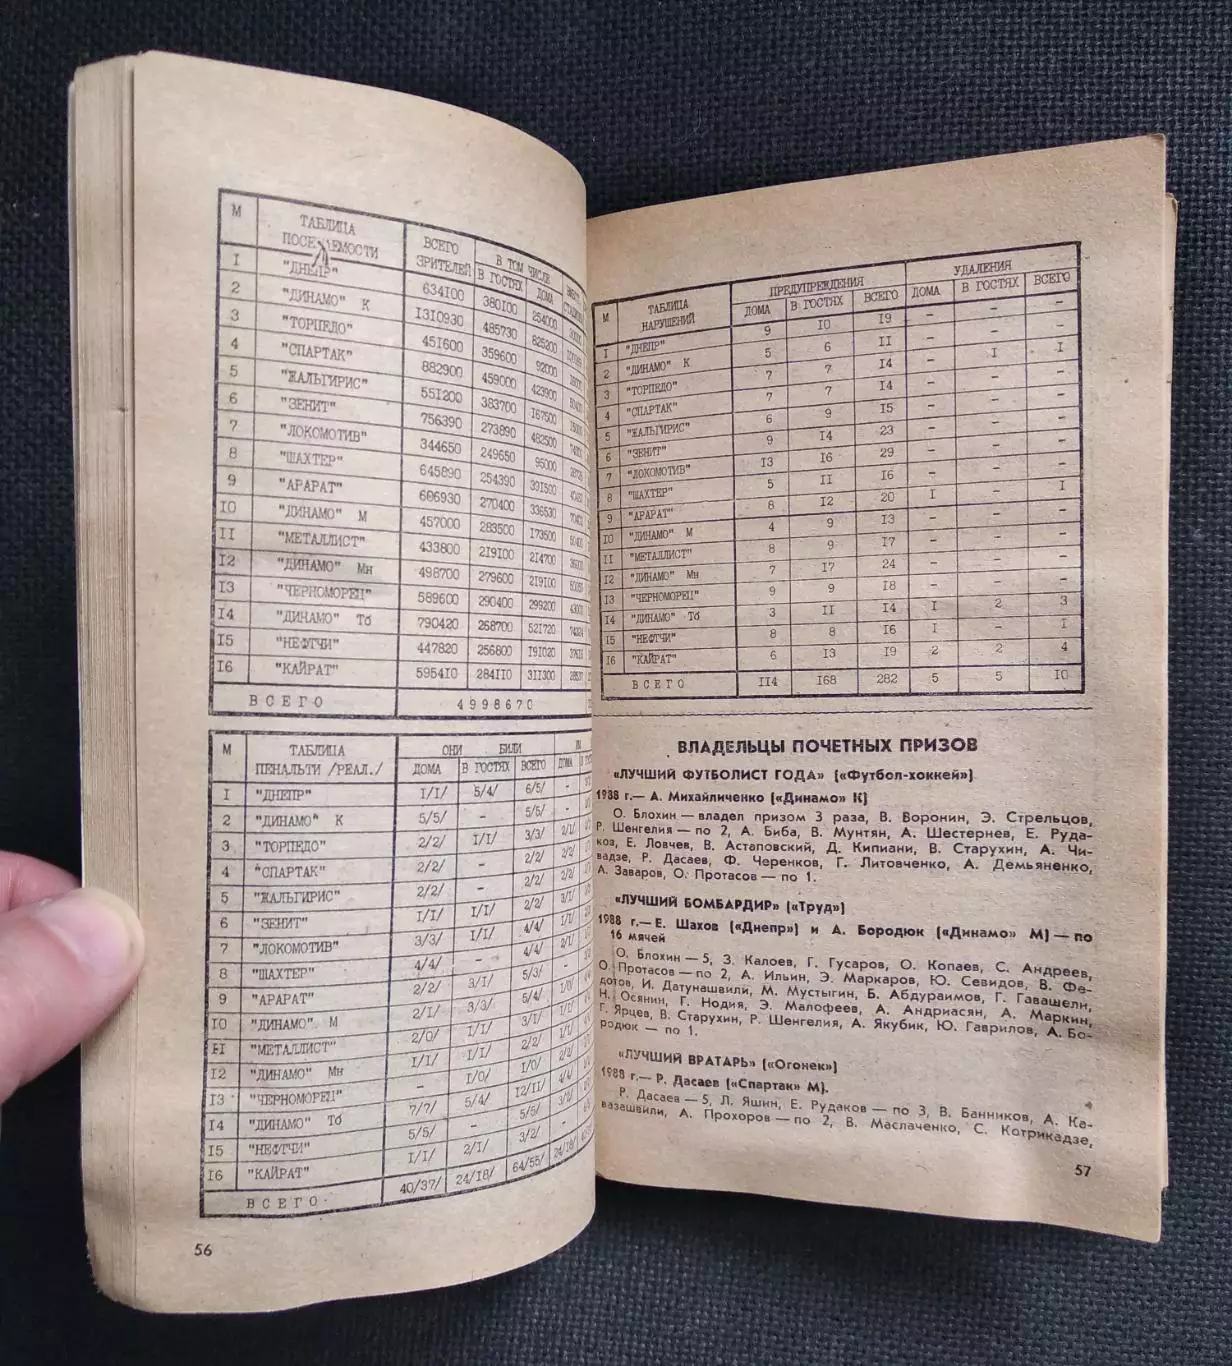 М ТАБЛИЦА ПОСЕЩАЕМОСТИ ВСЕГО ЗРИТЕЛЕЙ В ТОМ ЧИСЛЕ В ГОСТЯХ ДОМА
I "ДНЕПР" 634I00 380I00 254000
2 "ДИНАМО" К I3I0930 485730 825200
3 "ТОРПЕДО" 45I600 359600 92000
4 "СПАРТАК" 882900 459000 423900
5 "ЖАЛЬГИРИС" 55I200 383700 I67500
6 "ЗЕНИТ" 756390 273890 482500
7 "ЛОКОМОТИВ" 344650 249650 95000
8 "ШАХТЕР" 645890 254390 39I500
9 "АРАРАТ" 606930 270400 336530
I0 "ДИНАМО" М 457000 283500 I73500
II "МЕТАЛЛИСТ" 433800 2I9I00 2I4700
I2 "ДИНАМО" Мн 498700 279600 2I9I00
I3 "ЧЕРНОМОРЕЦ" 589600 290400 299200
I4 "ДИНАМО" Тб 790420 268700 52I720
I5 "НЕФТЧИ" 447820 256800 I9I020
I6 "КАЙРАТ" 5954I0 284II0 3II300
ВСЕГО 4998670
М ТАБЛИЦА ПЕНАЛЬТИ /РЕАЛ./ ОНИ БИЛИ ДОМА В ГОСТЯХ ВСЕГО ДОМА
I "ДНЕПР" I/I/ 5/4/ 6/5/ -
2 "ДИНАМО" К 5/5/ - 5/5/ -
3 "ТОРПЕДО" 2/2/ I/I/ 3/3/ 2/I/
4 "СПАРТАК" 2/2/ - 2/2/ 2/2/
5 "ЖАЛЬГИРИС" 2/2/ - 2/2/
6 "ЗЕНИТ" I/I/ I/I/ 2/2/
7 "ЛОКОМОТИВ" 3/3/ I/I/ 4/4/
8 "ШАХТЕР" 4/4/ - 4/4/
9 "АРАРАТ" 2/2/ 3/I/ 5/3/
I0 "ДИНАМО" М 2/I/ 3/3/ 5/4/
II "МЕТАЛЛИСТ" 2/0/ I/I/ 3/I/
I2 "ДИНАМО" Мн I/I/ I/I/ 2/2/
I3 "ЧЕРНОМОРЕЦ" - I/0/ I/0/
I4 "ДИНАМО" Тб 7/7/ 5/4/ I2/II/
I5 "НЕФТЧИ" 5/5/ - 5/5/
I6 "КАЙРАТ" I/I/ 2/I/ 3/2/
ВСЕГО 40/37/ 24/I8/ 64/55/ 24/I8/
56
М ТАБЛИЦА НАРУШЕНИЙ ПРЕДУПРЕЖДЕНИЯ ДОМА В ГОСТЯХ ВСЕГО УДАЛЕНИЯ ДОМА В ГОСТЯХ ВСЕГО
I "ДНЕПР" 9 I0 I9 - - -
2 "ДИНАМО" К 5 6 II - - -
3 "ТОРПЕДО" 7 7 I4 - I I
4 "СПАРТАК" 7 7 I4 - - -
5 "ЖАЛЬГИРИС" 6 9 I5 - - -
6 "ЗЕНИТ" 9 I4 23 - - -
7 "ЛОКОМОТИВ" I3 I6 29 - - -
8 "ШАХТЕР" 5 II I6 - - -
9 "АРАРАТ" 8 I2 20 I - I
I0 "ДИНАМО" М 4 9 I3 - - -
II "МЕТАЛЛИСТ" 8 9 I7 - - -
I2 "ДИНАМО" Мн 7 I7 24 - - -
I3 "ЧЕРНОМОРЕЦ" 9 9 I8 - - -
I4 "ДИНАМО" Тб 3 II I4 I 2 3
I5 "НЕФТЧИ" 8 8 I6 I - I
I6 "КАЙРАТ" 6 I3 I9 2 2 4
ВСЕГО II4 I68 282 5 5 I0
ВЛАДЕЛЬЦЫ ПОЧЕТНЫХ ПРИЗОВ
«ЛУЧШИЙ ФУТБОЛИСТ ГОДА» («Футбол-хоккей»)
1988 г.— А. Михайличенко («Динамо» К)
О. Блохин — владел призом 3 раза, В. Воронин, Э. Стрельцов,
Р. Шенгелия — по 2, А. Биба, В. Мунтян, А. Шестернев, Е. Руда-
ков, Е. Ловчев, В. Астаповский, Д. Кипиани, В. Старухин, А. Чи-
вадзе, Р. Дасаев, Ф. Черенков, Г. Литовченко, А. Демьяненко,
А. Заваров, О. Протасов — по 1.
«ЛУЧШИЙ БОМБАРДИР» («Труд»)
1988 г.— Е. Шахов («Днепр») и А. Бородюк («Динамо» М) — по
16 мячей
О. Блохин — 5, З. Калоев, Г. Гусаров, О. Копаев, С. Андреев,
О. Протасов — по 2, А. Ильин, Э. Маркаров, Ю. Севидов, В. Фе-
дотов, И. Датунашвили, М. Мустыгин, Б. Абдураимов, Г. Гавашели,
Н. Осянин, Г. Нодия, Э. Малофеев, А. Андриасян, А. Маркин,
Г. Ярцев, В. Старухин, Р. Шенгелия, А. Якубик, Ю. Гаврилов, А. Бо-
родюк — по 1.
«ЛУЧШИЙ ВРАТАРЬ» («Огонек»)
1988 г.— Р. Дасаев («Спартак» М).
Р. Дасаев — 5, Л. Яшин, Е. Рудаков — по 3, В. Банников, А. Ка-
вазашвили, А. Прохоров — по 2, В. Маслаченко, С. Котрикадзе,
57